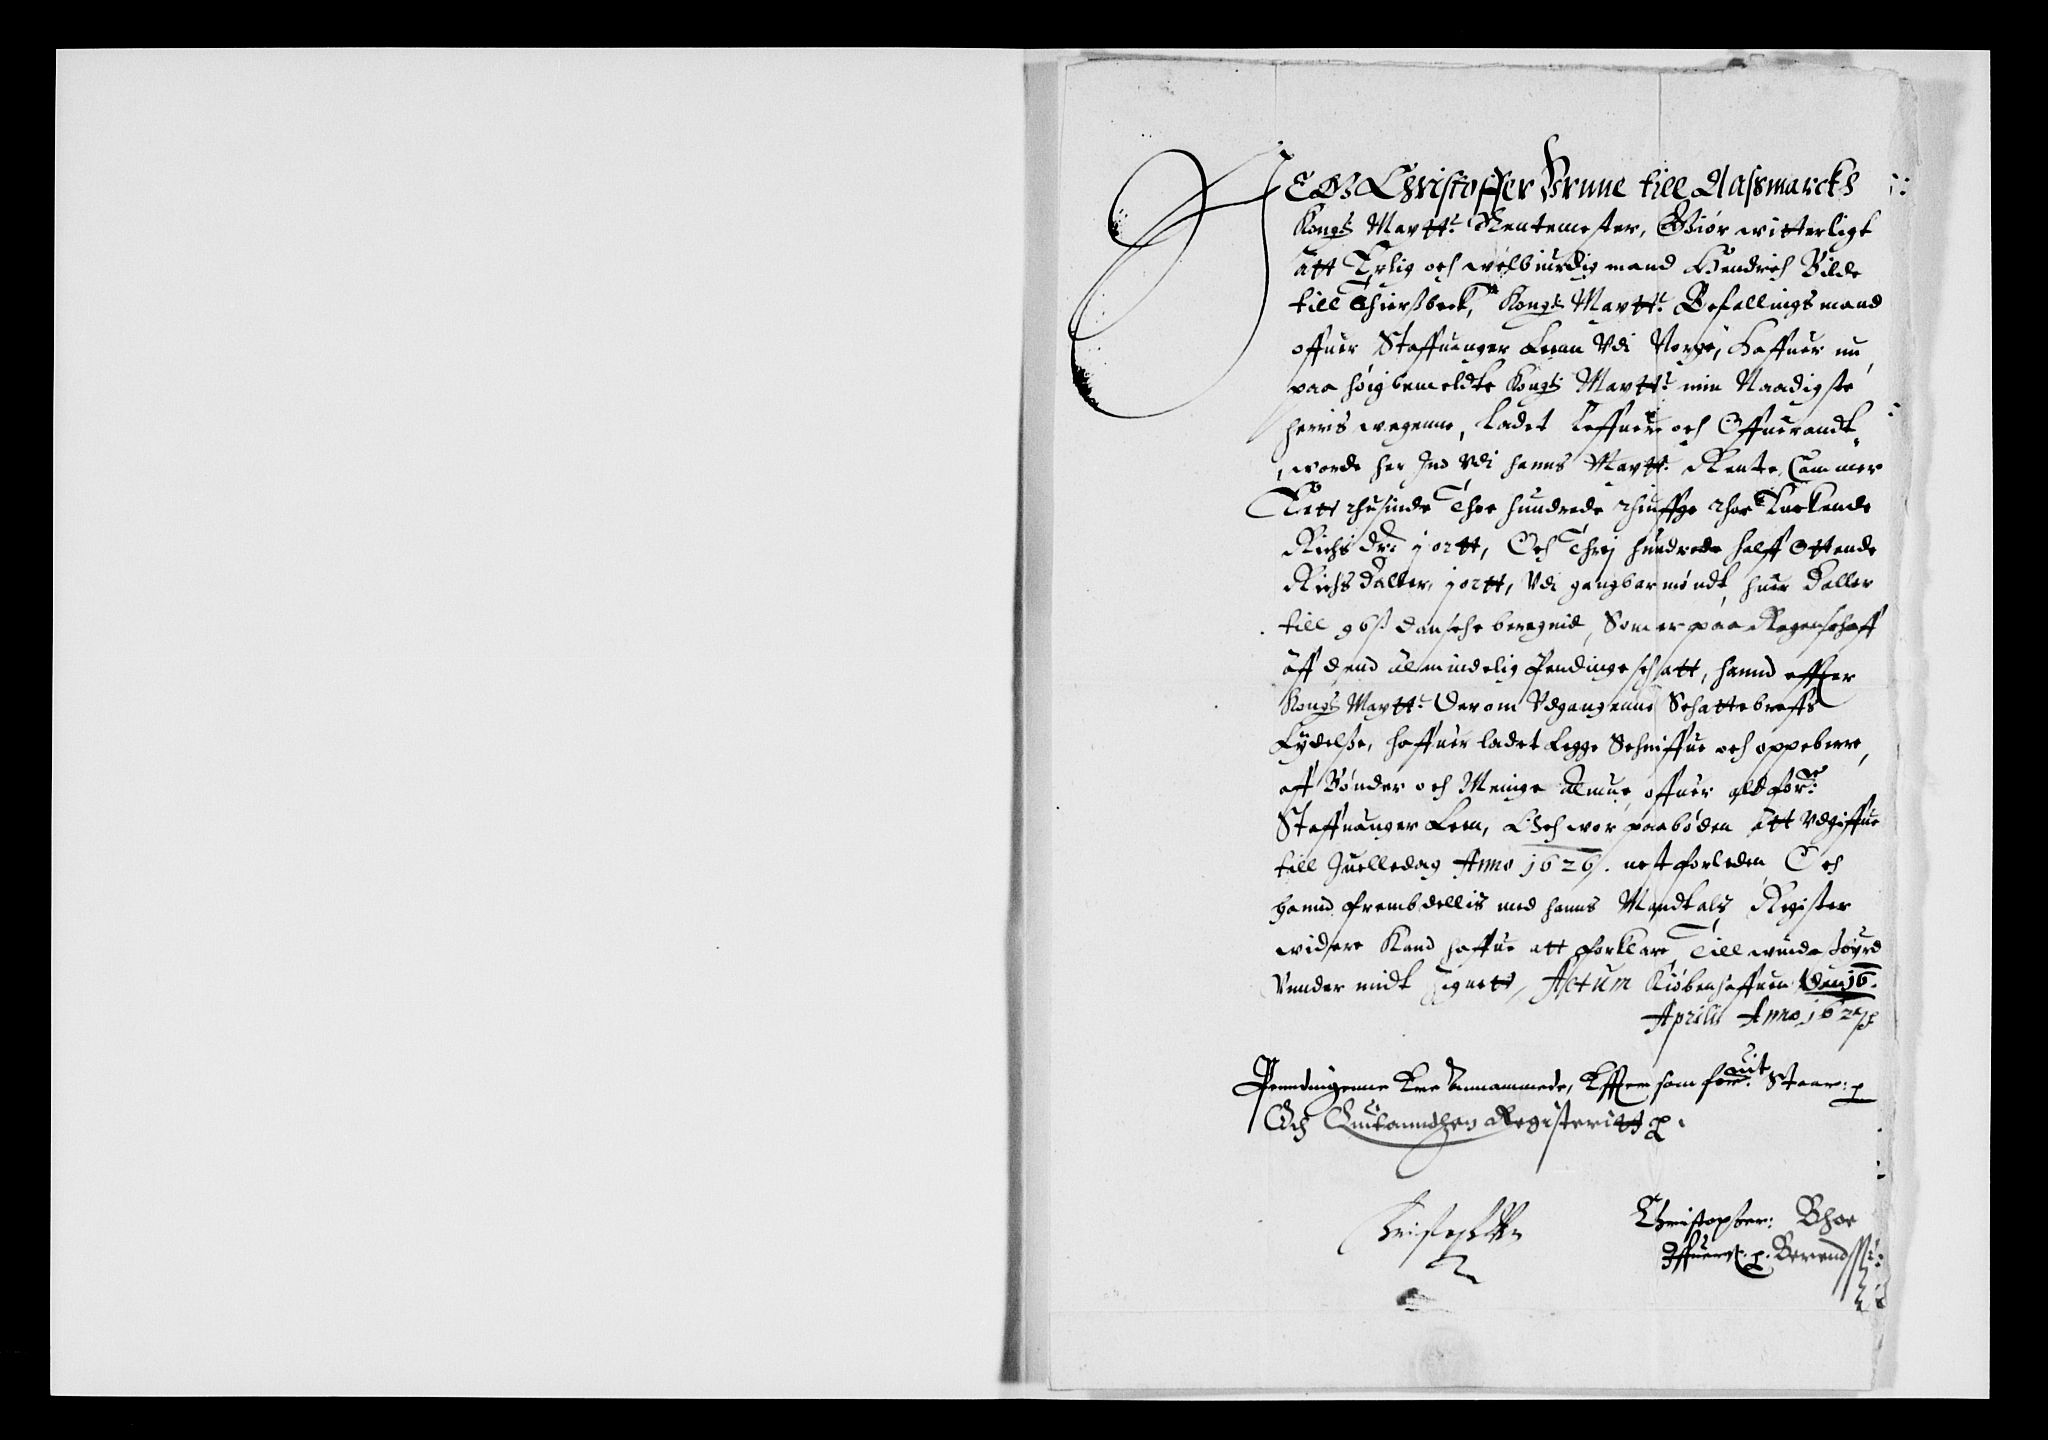 JEG Christoffer Vrne till Aassmarcke
Kongl: Maytt: Rentemester, Giør witterligt
att Erlig och welbiurdig mand Hendrich Bilde
till Thiersbeck, Kongl: Maytt: Befallings mand
offuer Staffuanger Leen Vdi Norge, haffuer nu
paa høigbemeldte Kongl: Maytt: min Naadigste
herris wegenne, Ladet Leffuere och Offuerandt-
worde her Ind Vdi hanns Maytt: Rente Cammer
Ett thusinde Thre hundrede thiuffge thoe
Richs dr: j ortt, Och Threj hundrede halff Ottende
Richs daller, j ortt, Vdi gangbar møndt, huer daller
till 96 ß dansche beregnid, Som er paa Regenschaff
aff dend Almindelig Pendinge schatt, hannd effter
Kongl: Maytt: Derom Vdgangenne Schattebreffs
Lydelße, haffuer ladet Legge Schriffue och oppeberre,
aff Bønder och Menige Almue, offuer ald for:ne
Staffuanger Leen, Och wor paabøden att Vdgiffue
till Juelledag Anno 1626. nest forleden, Och
hannd frembdellis med hanns Mandtals Register
widere Kand haffue att forklare, Till winde
Vnnder midt Signett, Actum Kiøbenhaffuen den 16.
Aprilis Anno 1627
Penndingenne Ere Annammede, Efftersom for:uit Staar:
Och Quitanndzen Registeritt
Christopher: Bhoe
Berend